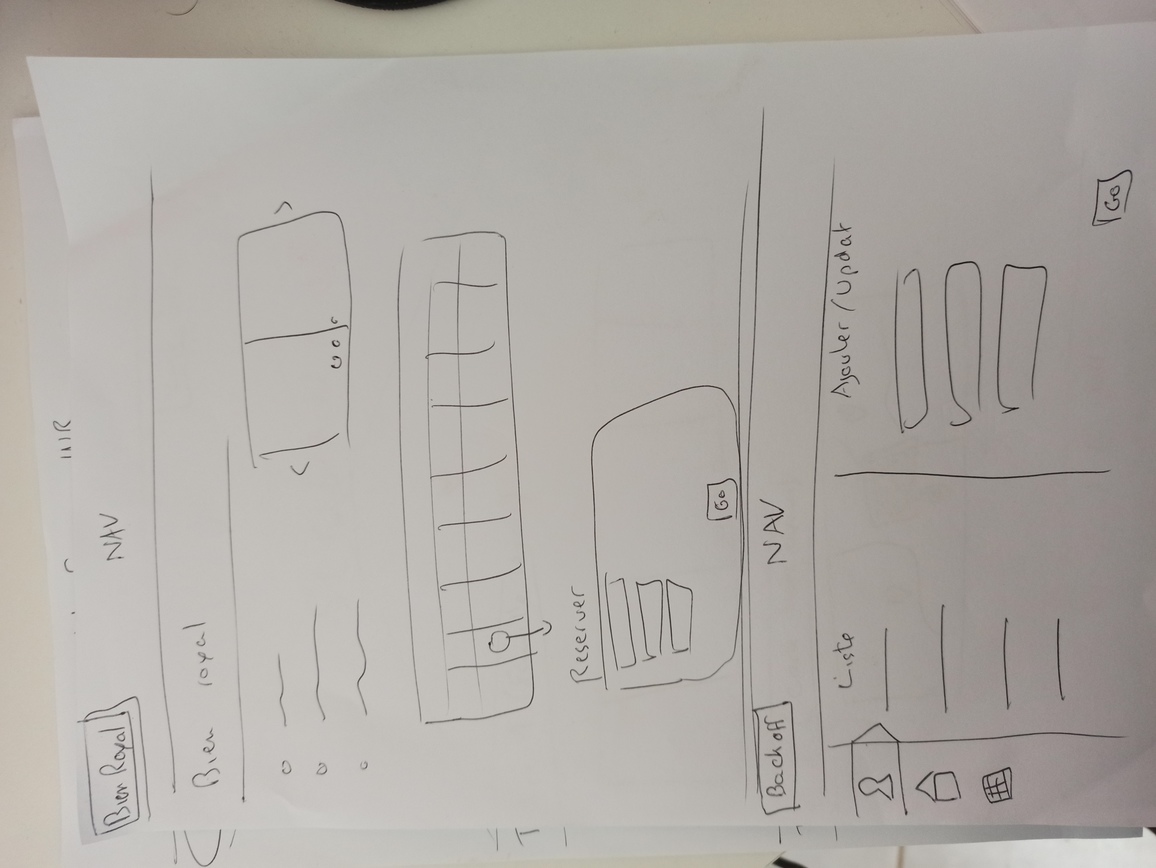 Bien Royal
NAV
Bien royal
Reserver
Go
Back off
NAV
Liste
Ajouter / Updat
Go